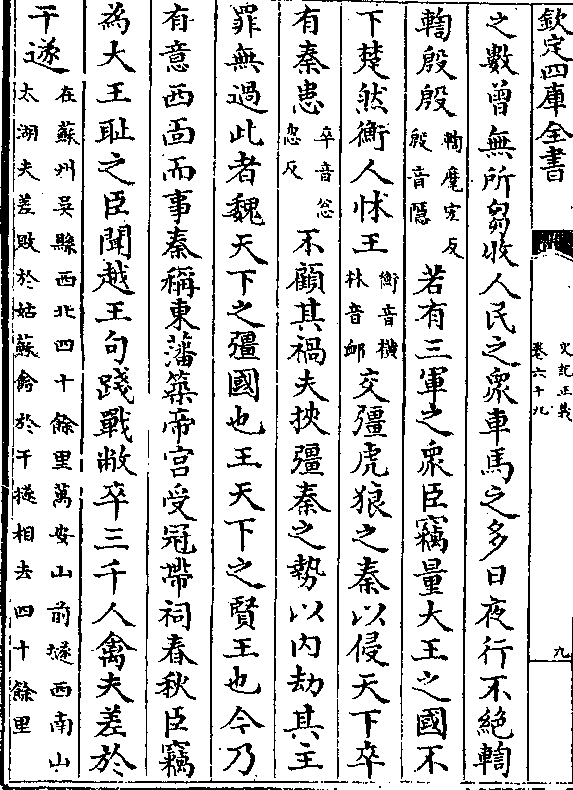 欽定四庫全書
史記正義
卷六十九
九
之數曾無所芻收人民之衆車馬之多日夜行不絶輷
輷殷殷
輷麾宏反
殷音隱
若有三軍之衆臣竊量大王之國不
下楚然衡人怵王
衡音橫
怵音䘏
交彊虎狼之秦以侵天下卒
有秦患
卒音怱
忽反
不顧其禍夫挾彊秦之勢以内劫其主
罪無過此者魏天下之彊國也王天下之賢王也今乃
有意西面而事秦稱東藩築帝宮受冠帶祠春秋臣竊
為大王恥之臣聞越王句踐戰敝卒三千人禽夫差於
干遂
在蘇州吳縣西北四十餘里萬安山前遂西南山
太湖夫差敗於姑蘇禽於干遂相去四十餘里